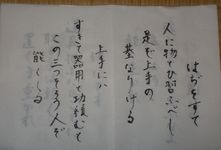 はぢをすて
人に物とひ習ふべし
是ぞ上手の
基なりける
上手にハ
すきと器用と功積むと
この三つそろう人ぞ
能くしる